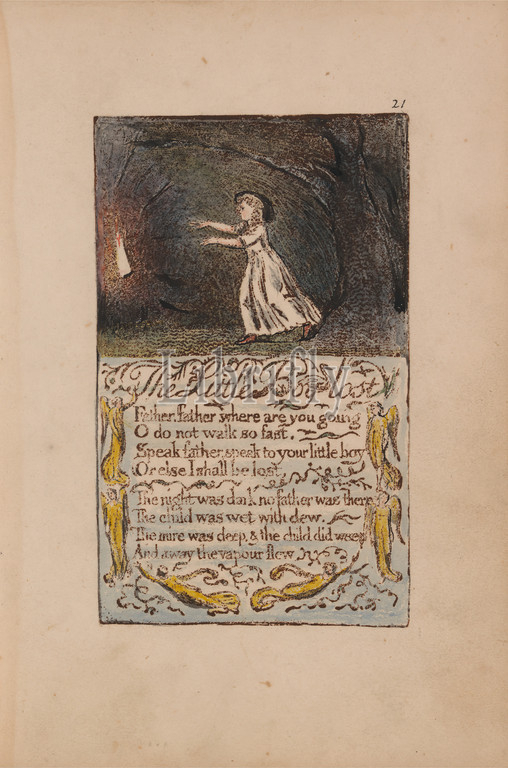 21
The Little Boy lost
Father, father, where are you going
O do not walk so fast.
Speak father, speak to your little boy
Or else I shall be lost.
The night was dark no father was there
The child was wet with dew.
The mire was deep, & the child did weep
And away the vapour flew.
Librifly